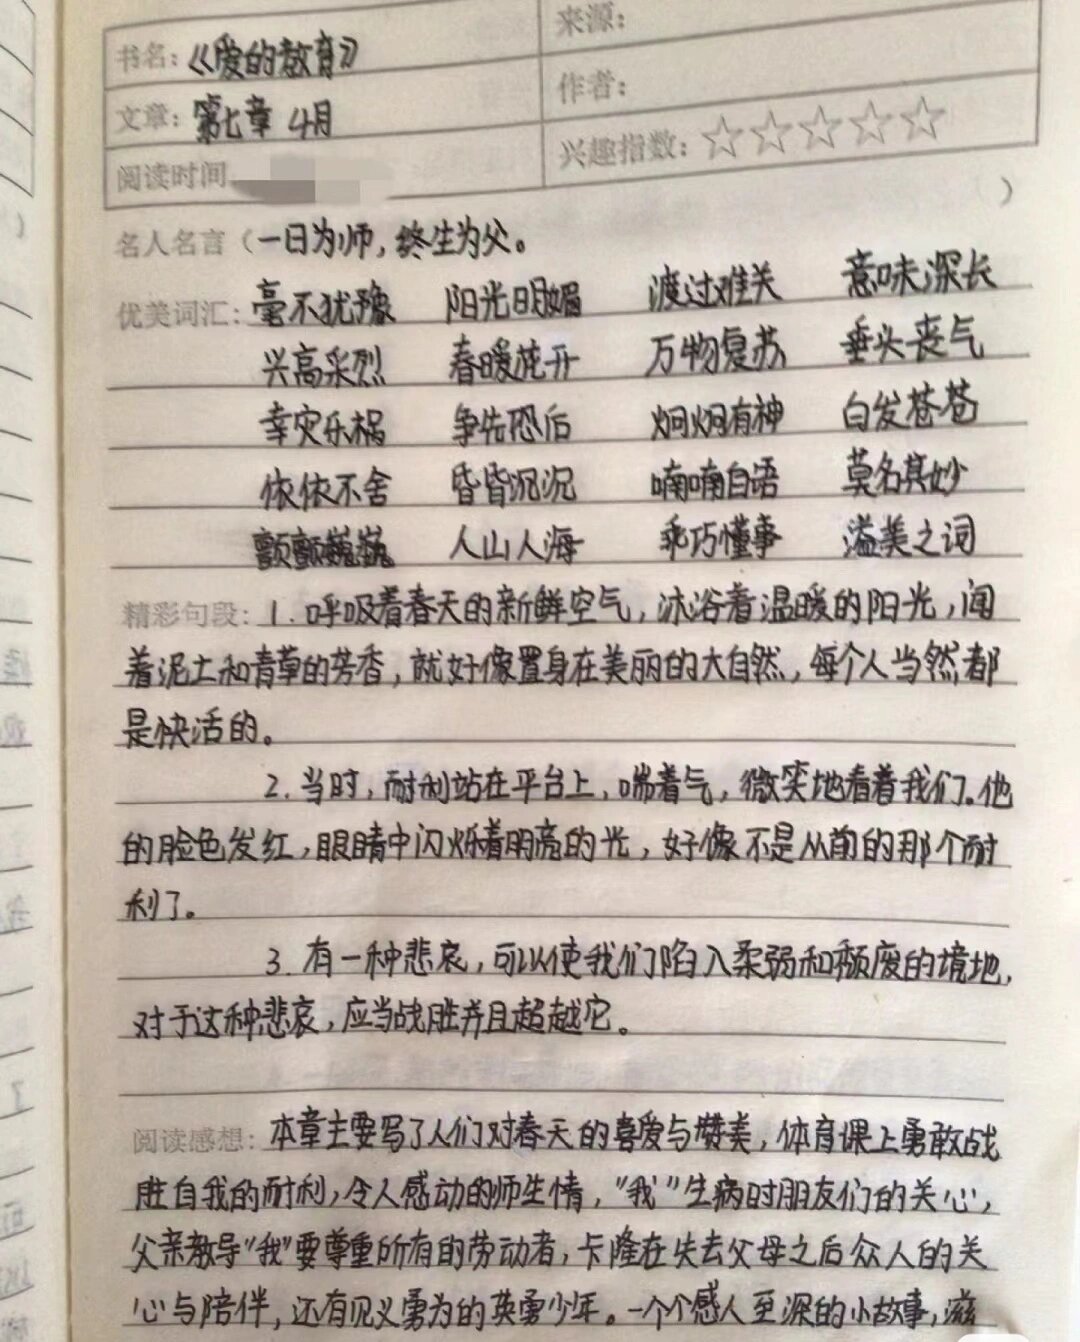 书名:《爱的教育》 来源:
文章:第七章 4月 作者:
阅读时间 兴趣指数:☆☆☆☆☆
名人名言(一日为师,终生为父。 )
优美词汇:毫不犹豫 阳光明媚 渡过难关 意味深长
兴高采烈 春暖花开 万物复苏 垂头丧气
幸灾乐祸 争先恐后 炯炯有神 白发苍苍
依依不舍 昏昏沉沉 喃喃自语 莫名其妙
颤颤巍巍 人山人海 乖巧懂事 溢美之词
精彩句段:1.呼吸着春天的新鲜空气,沐浴着温暖的阳光,闻
着泥土和青草的芳香,就好像置身在美丽的大自然,每个人当然都
是快活的。
2.当时,耐利站在平台上,喘着气,微笑地看着我们。他
的脸色发红,眼睛中闪烁着明亮的光,好像不是从前的那个耐
利了。
3.有一种悲哀,可以使我们陷入柔弱和颓废的境地,
对于这种悲哀,应当战胜并且超越它。
阅读感想:本章主要写了人们对春天的喜爱与赞美,体育课上勇敢战
胜自我的耐利,令人感动的师生情,"我"生病时朋友们的关心,
父亲教导"我"要尊重所有的劳动者,卡隆在失去父母之后众人的关
心与陪伴,还有见义勇为的英勇少年。一个个感人至深的小故事,滋